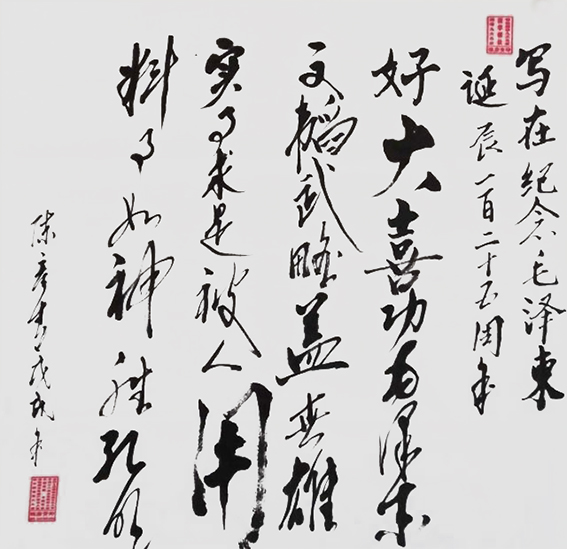 写在纪念毛泽东
诞辰一百二十五周年
好大喜功泽东
文韬武略盖英雄
实事求是被人用
料事如神胜孔明
陈彦戊戌年